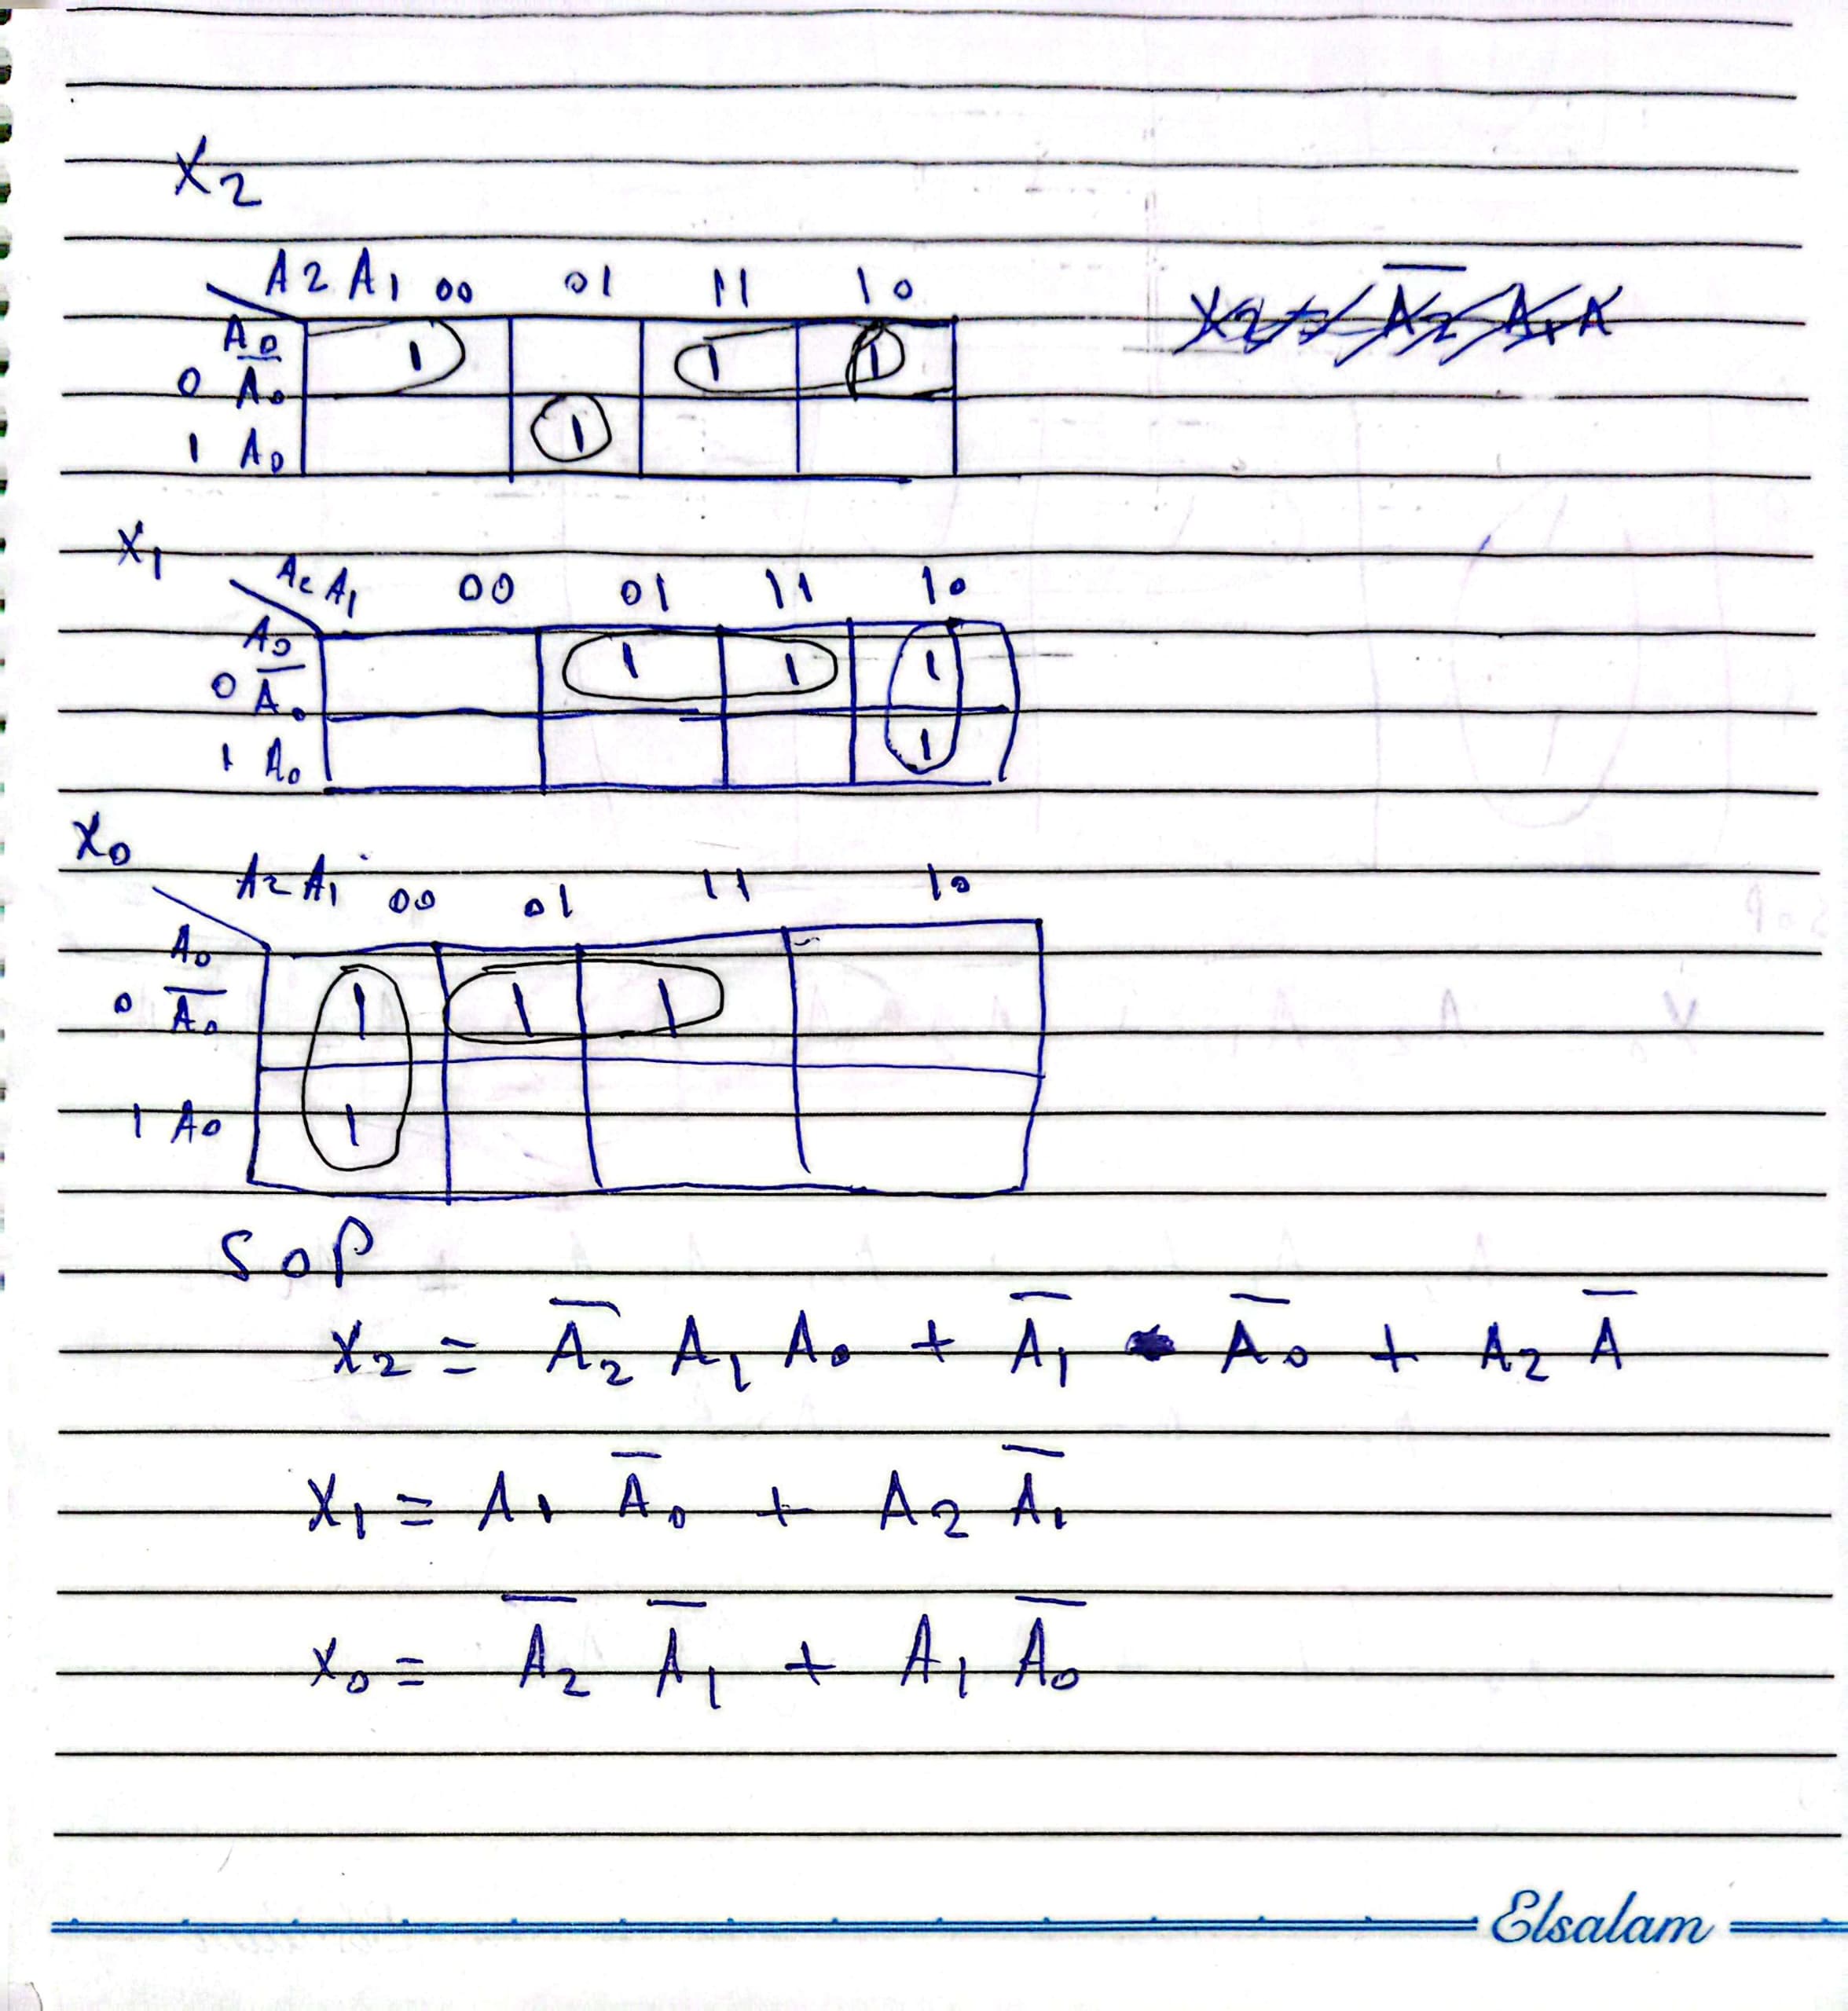 X2
A2 A1 00 01 11 10
A0
0 A̅0 1 1 1
1 A0 1
X1
A2 A1 00 01 11 10
A0
0 A̅0 1 1 1
1 A0 1
X0
A2 A1 00 01 11 10
A0
0 A̅0 1 1 1
1 A0 1
SOP
X2 = A̅2 A1 A0 + A̅1 A̅0 + A2 A̅
X1 = A1 A̅0 + A2 A̅1
X0 = A̅2 A̅1 + A1 A̅0
Elsalam